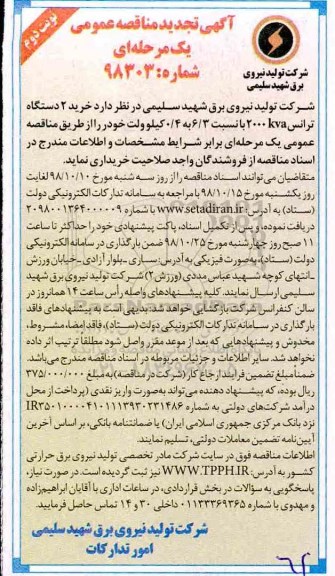 نوبت دوم
آگهی تجدید مناقصه عمومی
یک مرحله‌ای
شماره: ۹۸۳۰۳
شرکت تولید نیروی
برق شهید سلیمی
شرکت تولید نیروی برق شهید سلیمی در نظر دارد خرید ۲ دستگاه
ترانس ۲۰۰۰ kva با نسبت ۶/۳ به ۰/۴ کیلو ولت خود را از طریق مناقصه
عمومی یک مرحله‌ای برابر شرایط مشخصات و اطلاعات مندرج در
اسناد مناقصه از فروشندگان واجد صلاحیت خریداری نماید.
متقاضیان می‌توانند اسناد مناقصه را از روز سه شنبه مورخ ۹۸/۱۰/۱۰ لغایت
روز یکشنبه مورخ ۹۸/۱۰/۱۵ با مراجعه به سامانه تدارکات الکترونیکی دولت
(ستاد) به آدرس www.setadiran.ir با شماره ۲۰۹۸۰۰۱۳۶۴۰۰۰۰۰۹
دریافت نموده، و پس از تکمیل اسناد، پاکت پیشنهادی خود را حداکثر تا ساعت
۱۱ صبح روز چهارشنبه مورخ ۹۸/۱۰/۲۵ ضمن بارگذاری در سامانه الکترونیکی
دولت (ستاد)، به صورت فیزیکی به آدرس: ساری ـ بلوار آزادی ـ خیابان ورزش
ـ انتهای کوچه شهید عباس مددی (ورزش ۲) شرکت تولید نیروی برق شهید
سلیمی ارسال نمایند. کلیه پیشنهادهای واصله رأس ساعت ۱۴ همانروز در
سالن کنفرانس شرکت بازگشایی خواهد شد. بدیهی است به پیشنهادهای فاقد
بارگذاری در سامانه تدارکات الکترونیکی دولت (ستاد)، فاقد امضا، مشروط،
مخدوش و پیشنهادهایی که بعد از موعد مقرر واصل شود مطلقاً ترتیب اثر داده
نخواهد شد. سایر اطلاعات و جزئیات مربوطه در اسناد مناقصه مندرج می‌باشد.
ضمناً مبلغ تضمین فرایند ارجاع کار (شرکت در مناقصه) به مبلغ ۳۷۵/۰۰۰/۰۰۰
ریال بوده، که پیشنهاد دهنده می‌تواند به‌صورت واریز نقدی (پرداخت از محل
درآمد شرکت‌های دولتی به شماره IR۳۵۰۱۰۰۰۰۴۱۰۱۱۱۳۹۳۰۲۳۱۴۸۶
نزد بانک مرکزی جمهوری اسلامی ایران) یا ضمانتنامه بانکی، بر اساس آخرین
آیین‌نامه تضمین معاملات دولتی، تسلیم نمایند.
اطلاعات مناقصه فوق در سایت شرکت مادر تخصصی تولید نیروی برق حرارتی
کشور به آدرس: WWW.TPPH.IR نیز ثبت گردیده است. در صورت نیاز،
پاسخگویی به سؤالات در بخش قراردادی، در ساعات اداری با آقایان ابراهیم‌زاده
و مهدوی با شماره ۰۱۱۳۳۳۶۹۳۶۵ داخلی ۳۰ و ۱۴ تماس حاصل فرمایید.
شرکت تولید نیروی برق شهید سلیمی
امور تدارکات